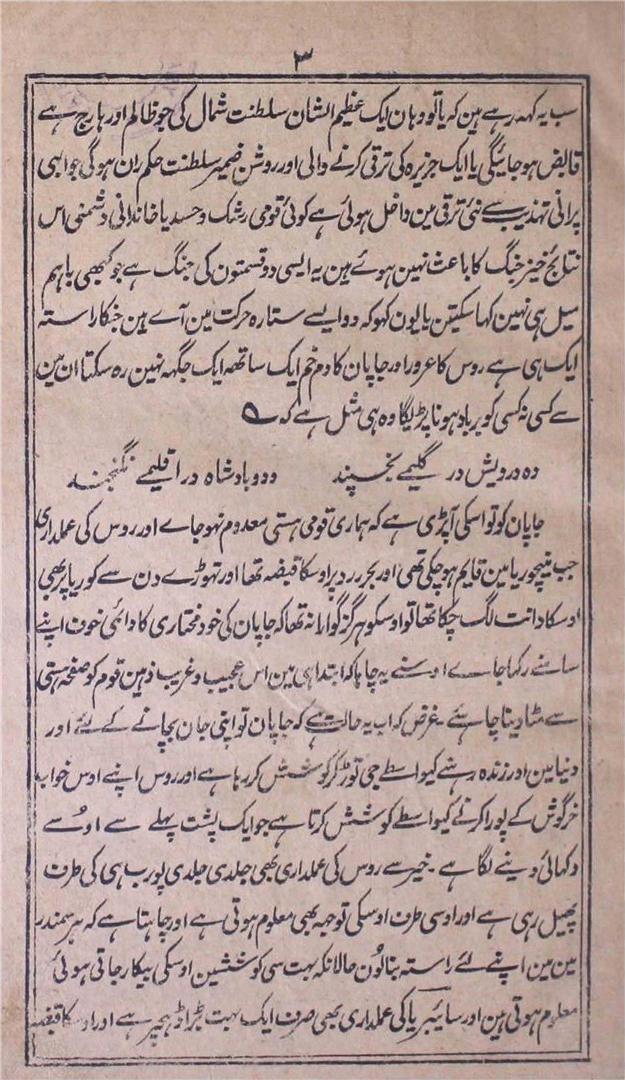 ۳
سب یہ کہہ رہے ہین کہ یا تو وہان ایک عظیم الشان سلطنت شمال کی جو ظالم اور ہارج ہے
قابض ہو جائیگی یا ایک جزیرہ کی ترقی کرنے والی اور روشن ضمیر سلطنت حکمران ہوگی جو ابھی
پرانی تہذیب سے نئی ترقی مین داخل ہوئی ہے کوئی قومی رشک و حسد یا خاندانی دشمنی اس
نتائج خیز جنگ کا باعث نہین ہوئے ہین یہ ایسی دو قسمتون کی جنگ ہے جو کبھی باہم
میل ہی نہین کھا سکیتن یا یون کہو کہ دو ایسے ستارہ حرکت مین آے ہین جنکا راستہ
ایک ہی ہے روس کا غرور اور جاپان کا دم خم ایک ساتھہ ایک جگہہ نہین رہ سکتا ان مین
سے کسی نہ کسی کو برباد ہونا پڑیگا وہ ہی مثل ہے کہ ؎
دہ درویش در گلیمے بخسپند ودو بادشاہ در اقلیمے نگنجند
جاپان کو تو اسکی آپڑی ہے کہ ہماری قومی ہستی معدوم نہو جاے اور روس کی عملداری
جب مینچوریا مین قایم ہو چکی تھی اور بحر زرد پر اوسکا قبضہ تھا اور تھوڑے دن سے کوریا پر بھی
اوسکا دانت لگ چکا تھا تو اوسکو ہرگز گوارا نہ تھا کہ جاپان کی خود مختاری کا دائمی خوف اپنے
سامنے رکھا جاے اوسنے یہ چاہا کہ ابتدا ہی مین اس عجیب و غریب ذہین قوم کو صفحہ ہستی
سے مٹا دینا چاہئے ۔ غرض کہ اب یہ حالت ہے کہ جاپان تو اپنی جان بچانے کے لئے اور
دنیا مین اور زندہ رہنے کیواسطے جی توڑ کر کوشش کر رہا ہے اور روس اپنے اوس خواب
خرگوش کے پورا کرنے کیواسطے کوشش کرتا ہے جو ایک پشت پہلے سے اوسے
دکھائی دینے لگا ہے ۔ خیر سے روس کی عملداری بھی جلدی جلدی پورب ہی کی طرف
پھیل رہی ہے اور اوسی طرف اوسکی توجہ بھی معلوم ہوتی ہے اور چاہتا ہے کہ ہر سمندر
مین مین اپنے لئے راستہ بنا لون حالانکہ بہت سی کوششین اوسکی بیکار جاتی ہوئی
معلوم ہوتی ہین اور سائبیریا کی عملداری بھی صرف ایک بہت بڑا ڈہیر ہے اور اوسکا قبضہ